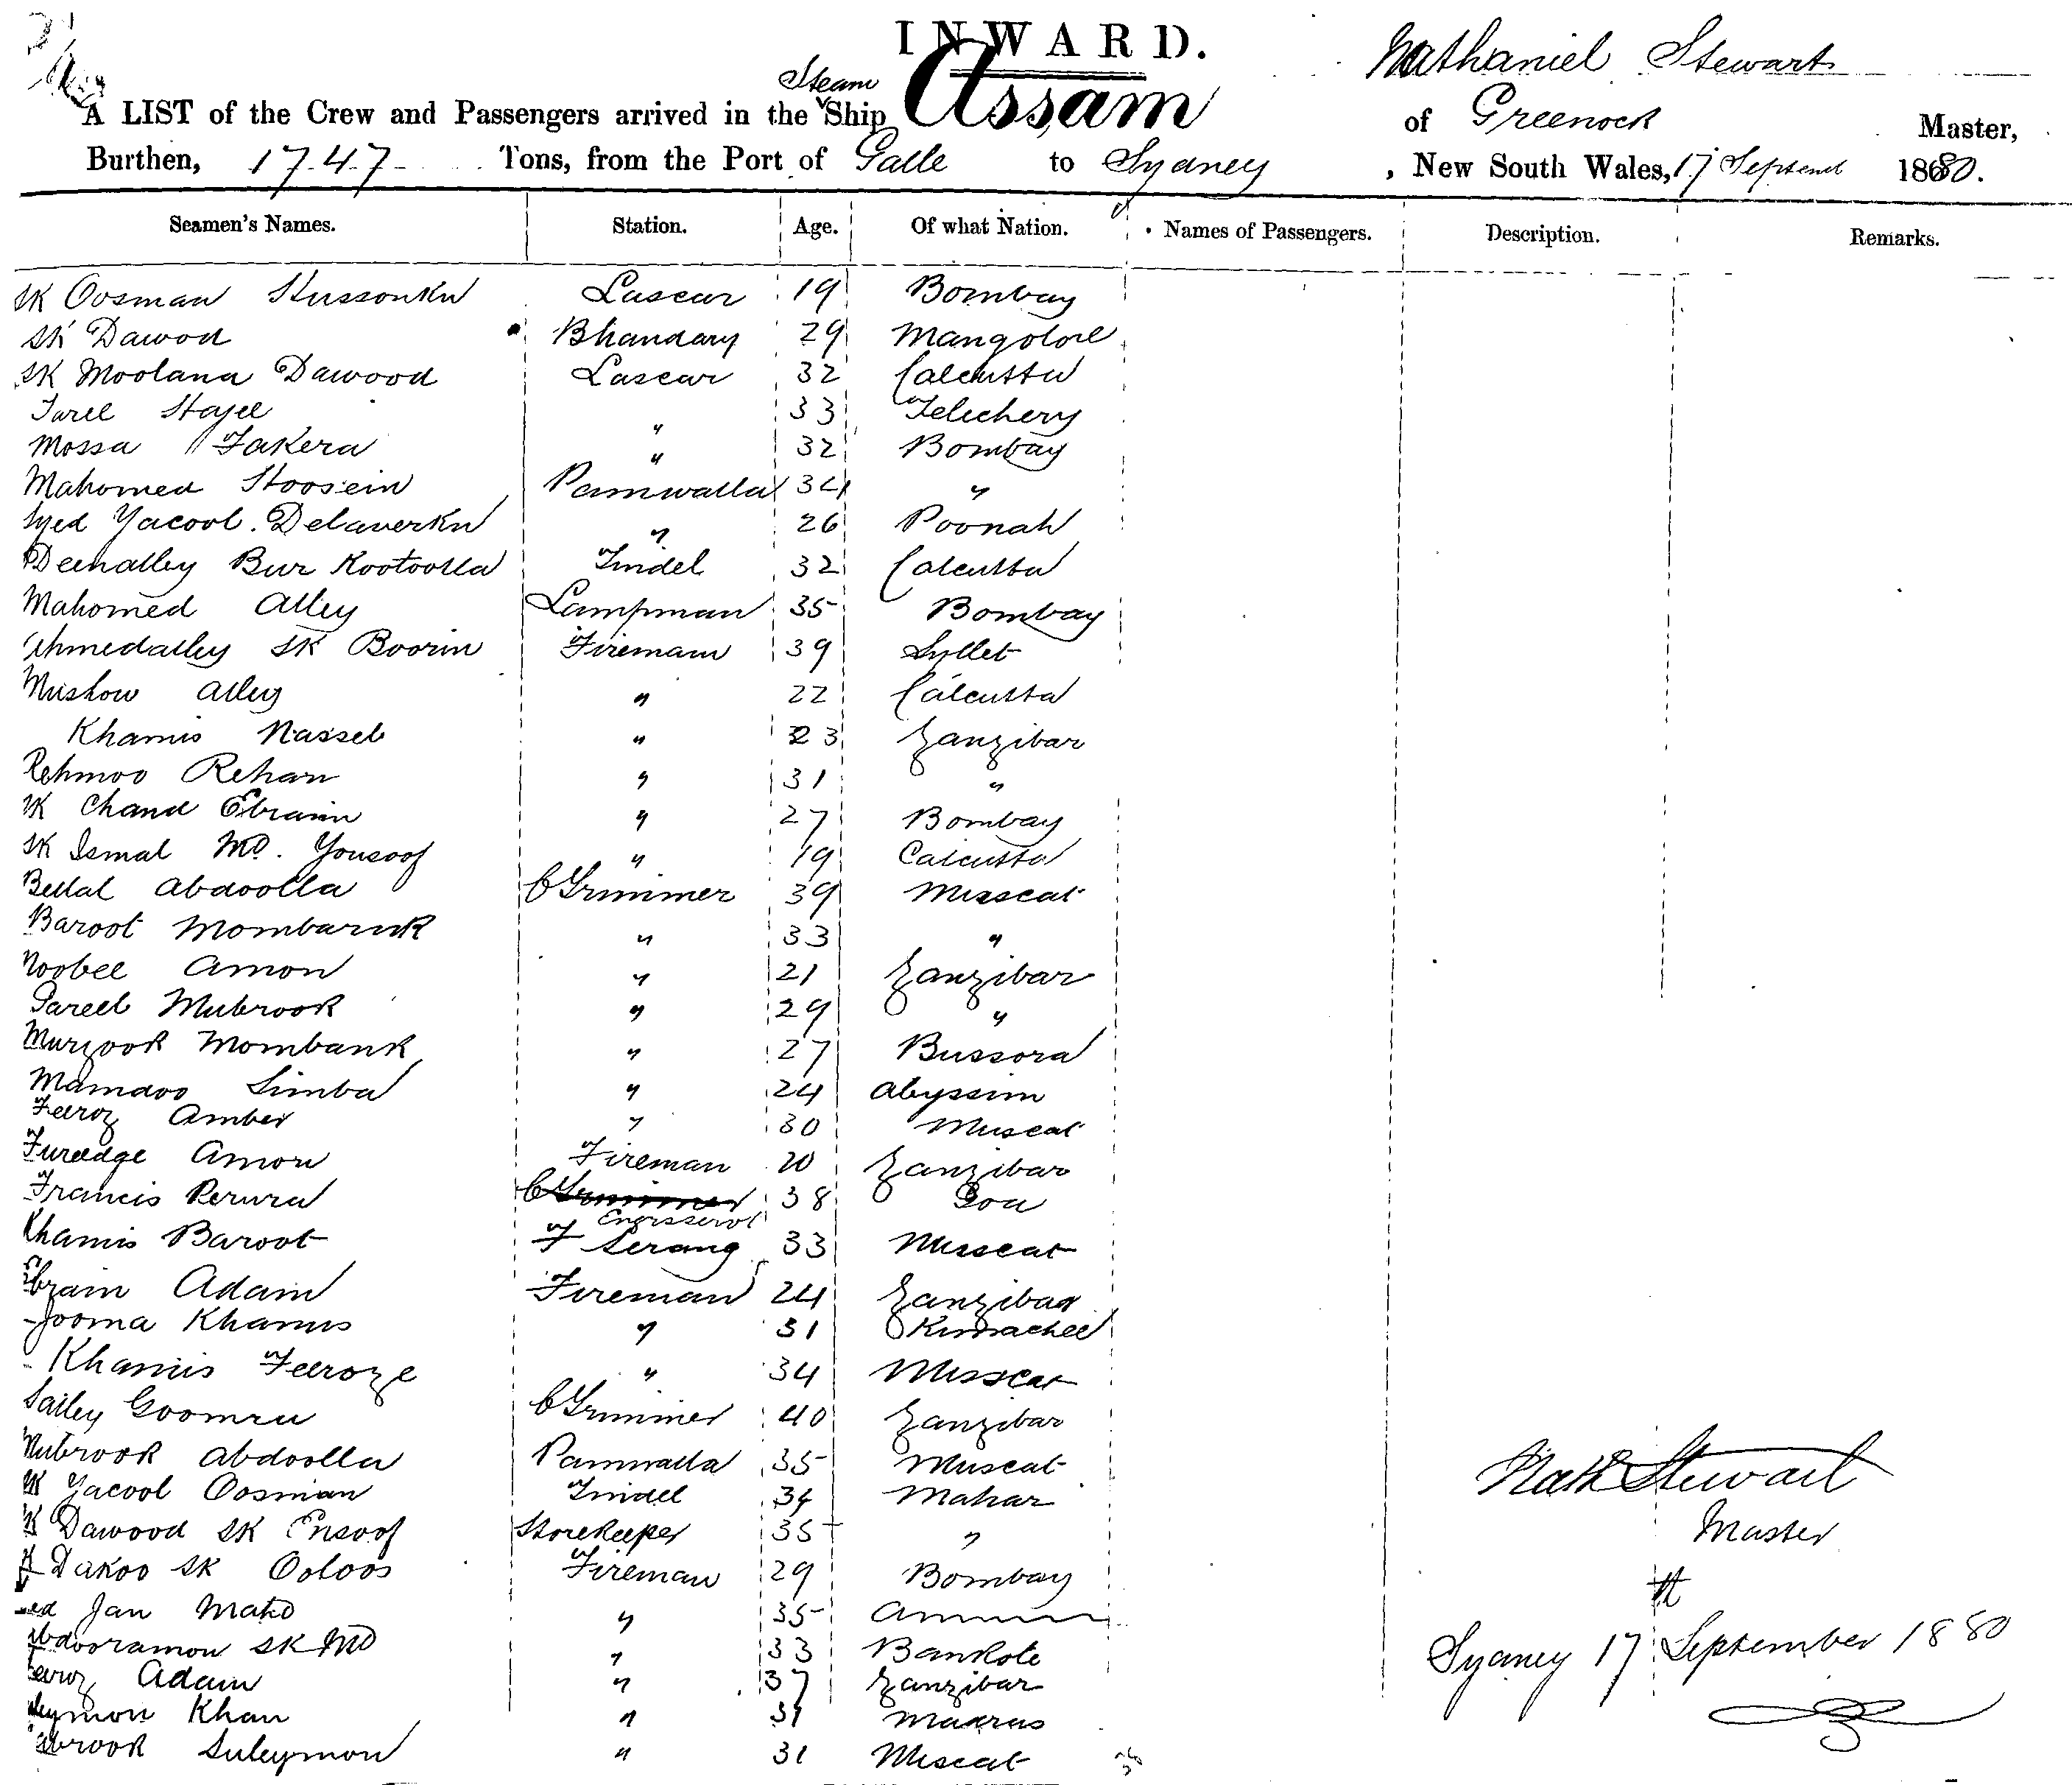 INWARD.
Nathaniel Stewart
Steam
A LIST of the Crew and Passengers arrived in the Ship Assam of Greenock Master,
Burthen, 1747 Tons, from the Port of Galle to Sydney, New South Wales, 17 Septemb 1880.
Seamen's Names. Station. Age. Of what Nation. Names of Passengers. Description. Remarks.
SK Oosman Hussonkn Lascar 19 Bombay
SK Dawod Bhandary 29 Mangolore
SK Moolana Dawood Lascar 32 Calcutta
33 Telechery
Mossa Fakera " 32 Bombay
Mahomed Hoosein Pamwalla 34 "
Syed Yacool Delaverkn " 26 Poonah
Deenalley Bur Kootoolla Tindel 32 Calcutta
Mahomed Alley Lampman 35 Bombay
Ahmedalley SK Boorin Fireman 39 Syllet
Mishow Alley " 22 Calcutta
Khamis Nasseb " 23 Zanzibar
Rehmoo Rehan " 31 "
SK Chand Ebraim " 27 Bombay
SK Ismal MD. Yousoof " 19 Calcutta
Bellal Abdoolla C Trimmer 39 Muscat
Baroot Mombaruk " 33 "
Noobee Amon " 21 Zanzibar
Mubrook " 29 "
Murzook Mombank " 27 Bussora
Mamdoo Simba " 24 Abyssin
Feeroz Amber " 30 Muscat
Fureedge Amon Fireman 20 Zanzibar
Francis Perura C Trimmer 38 Goa
Engrsservt
Khamis Baroot F Serang 33 Muscat
Ebraim Adam Fireman 24 Zanzibar
Jooma Khamis " 31
Khamis Feeroze " 34 Muscat
Sailey Goomra C Trimmer 40 Zanzibar
Mubrook Abdoolla Pamwalla 35 Muscat
SK Yacool Oosman Tindel 34 Mahar
SK Dawood SK Ensoof Storekeeper 35 "
Dakoo SK Ooloos Fireman 29 Bombay
Jan Mahd " 35
Abdooramon SK MD " 33 Bankote
Feeroz Adam " 37 Zanzibar
Khan " 31 Madras
Suleymon " 31 Muscat
Nath Stewart
Master
Sydney 17 September 1880